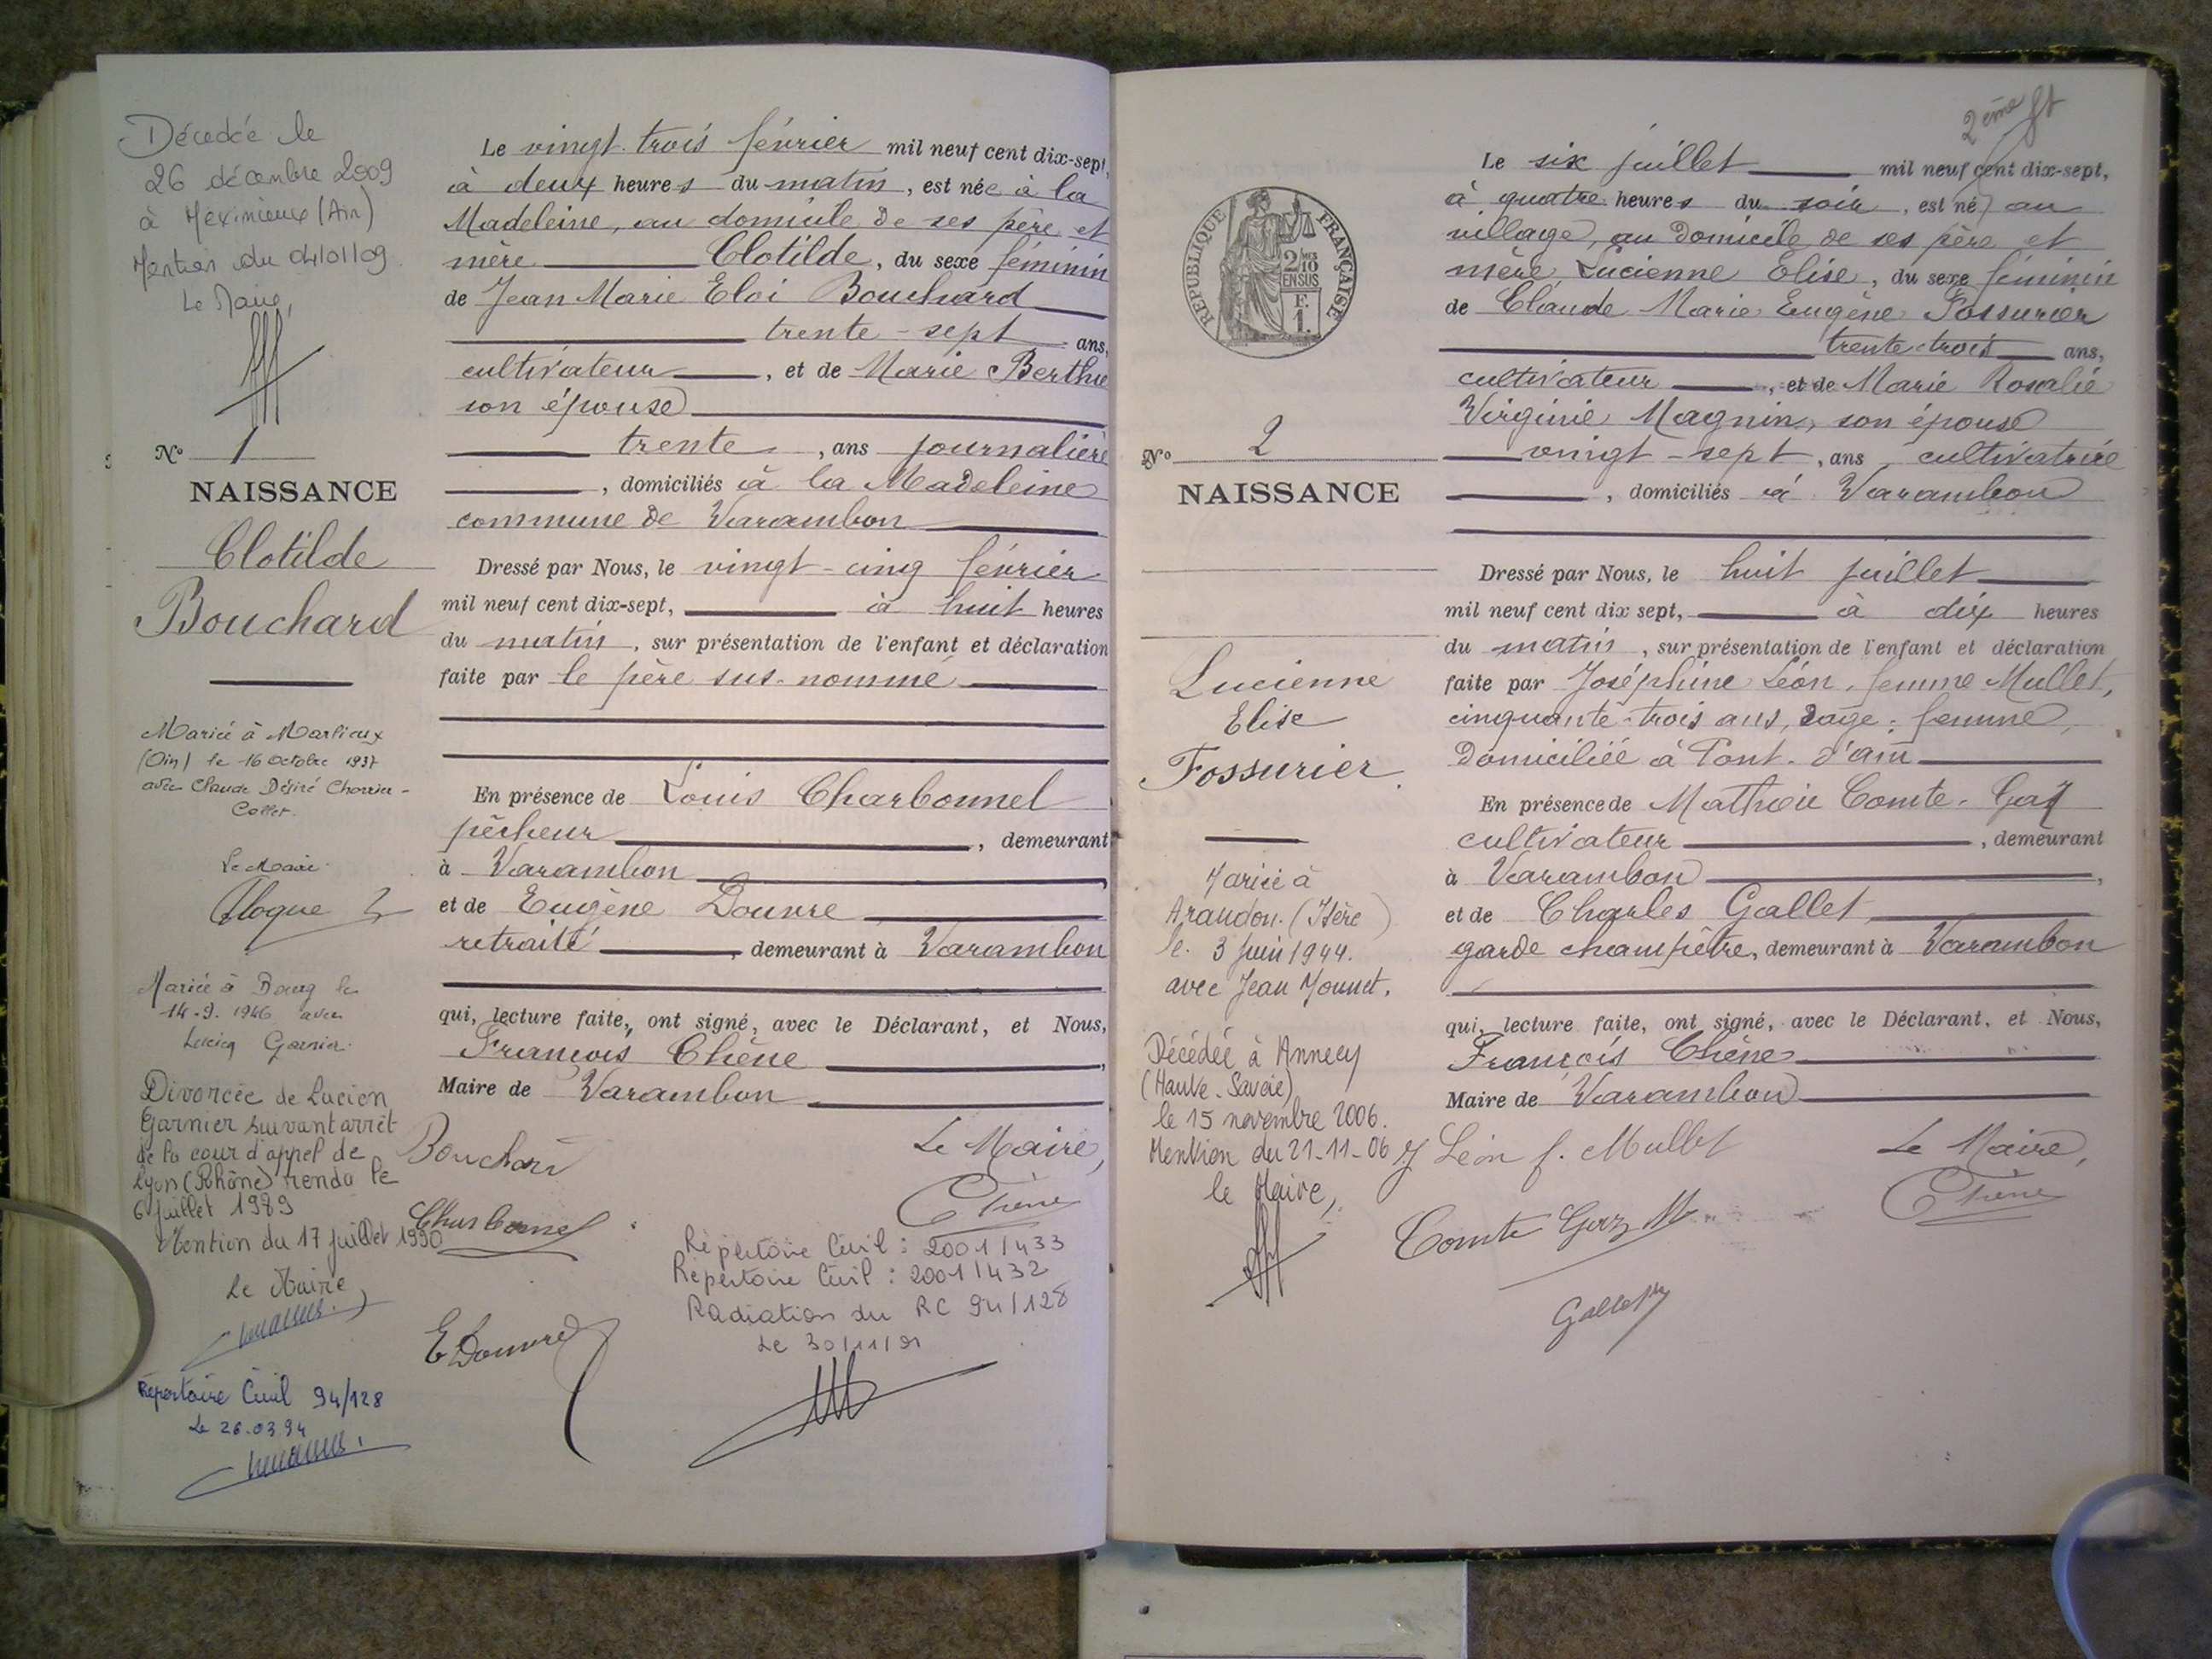 Décédée le
26 décembre 2009
à Meximieux (Ain)
Mention du 04/01/09
Le Maire,
N° 1
NAISSANCE
Clotilde
Bouchard
Mariée à Marlieux
(Ain) le 16 Octobre 1937
avec Claude Désiré
Collet.
Le Maire.
Mariée à Bourg le
14-9-1946 avec
Lucien Garnier.
Divorcée de Lucien
Garnier suivant arrêt
de la cour d'appel de
Lyon (Rhône) rendu le
6 juillet 1989
Mention du 17 juillet 1990
Le Maire
Répertoire Civil 94/128
Le 26.03.94
Le vingt-trois février mil neuf cent dix-sept,
à deux heures du matin, est née à la
Madeleine, au domicile de ses père et
mère Clotilde, du sexe féminin
de Jean Marie Eloi Bouchard
trente-sept ans,
cultivateur, et de Marie Berthe
son épouse
trente, ans journalière
, domiciliés à la Madeleine
commune de Varambon
Dressé par Nous, le vingt-cinq février
mil neuf cent dix-sept, à huit heures
du matin, sur présentation de l'enfant et déclaration
faite par le père sus-nommé
En présence de Louis Charbonnel
pêcheur, demeurant
à Varambon,
et de Eugène Douvre
retraité, demeurant à Varambon
qui, lecture faite, ont signé, avec le Déclarant, et Nous,
François Chêne,
Maire de Varambon
Bouchard
Le Maire,
Chêne
Charbonnel
E Douvre
Répertoire Civil : 2001/433
Répertoire Civil : 2001/432
Radiation du RC 94/128
Le 30/11/01
2ème ft
RÉPUBLIQUE FRANÇAISE
2/10 EN SUS
F. 1.
N° 2
NAISSANCE
Lucienne
Elise
Fossurier
Mariée à
Arandon. (Isère)
le 3 juin 1944.
avec Jean Mounet.
Décédée à Annecy
(Haute-Savoie)
le 15 novembre 2006.
Mention du 21-11-06
le Maire,
Le six juillet mil neuf cent dix-sept,
à quatre heures du soir, est né au
village, au domicile de ses père et
mère Lucienne Elise, du sexe féminin
de Claude Marie Eugène Fossurier
trente-trois ans,
cultivateur, et de Marie Rosalie
Virginie Magnin, son épouse
vingt-sept, ans cultivatrice
, domiciliés à Varambon
Dressé par Nous, le huit juillet
mil neuf cent dix sept, à dix heures
du matin, sur présentation de l'enfant et déclaration
faite par Joséphine Léon, femme Mullet,
cinquante-trois ans, sage-femme,
domiciliée à Pont-d'ain
En présence de Mathieu Comte-Gaz
cultivateur, demeurant
à Varambon,
et de Charles Gallet
garde champêtre, demeurant à Varambon
qui, lecture faite, ont signé, avec le Déclarant, et Nous,
François Chêne
Maire de Varambon
J Léon f. Mullet
Le Maire,
Chêne
Comte Gaz M
Gallet